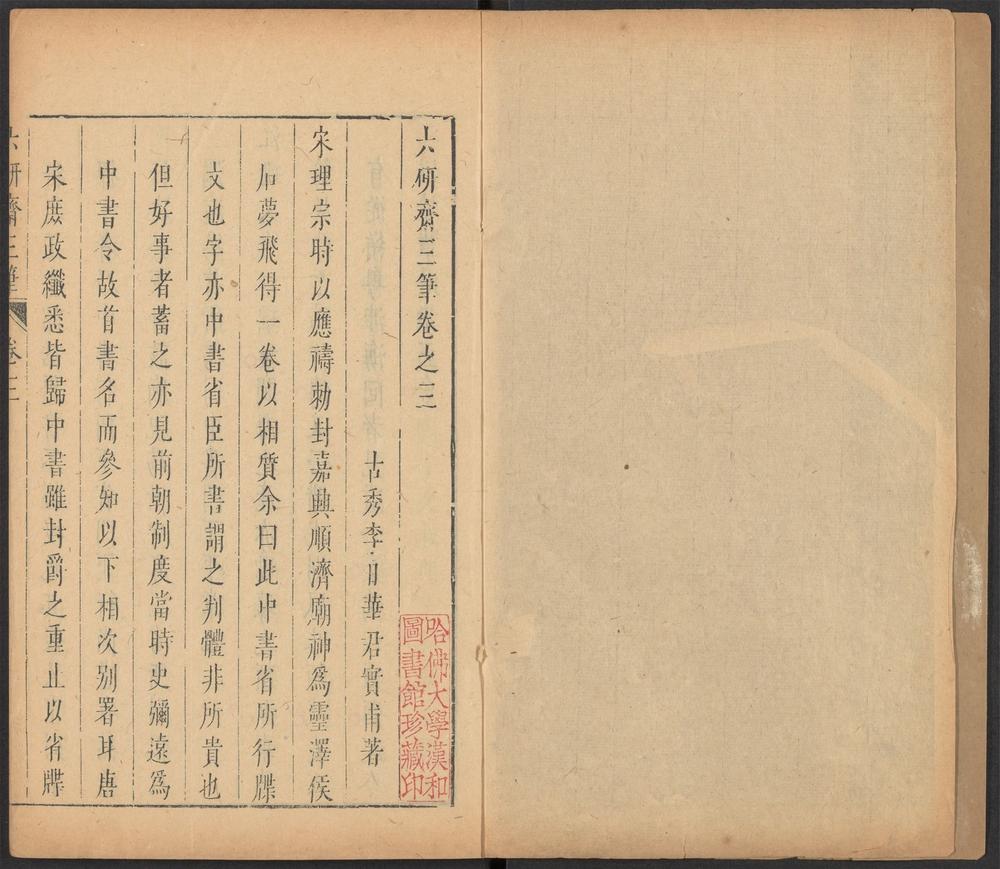 六研齋三筆卷之三
古秀李日華君實甫著
宋理宗時以應禱勅封嘉興順濟廟神爲靈澤侯
石夢飛得一卷以相質余曰此中書省所行牒
文也字亦中書省臣所書謂之判體非所貴也
但好事者蓄之亦見前朝制度當時史彌遠爲
中書令故首書名而參知以下相次別署耳唐
宋庶政纖悉皆歸中書雖封爵之重止以省牒
六研齋三筆
卷三
哈佛大學漢和
圖書館珍藏印